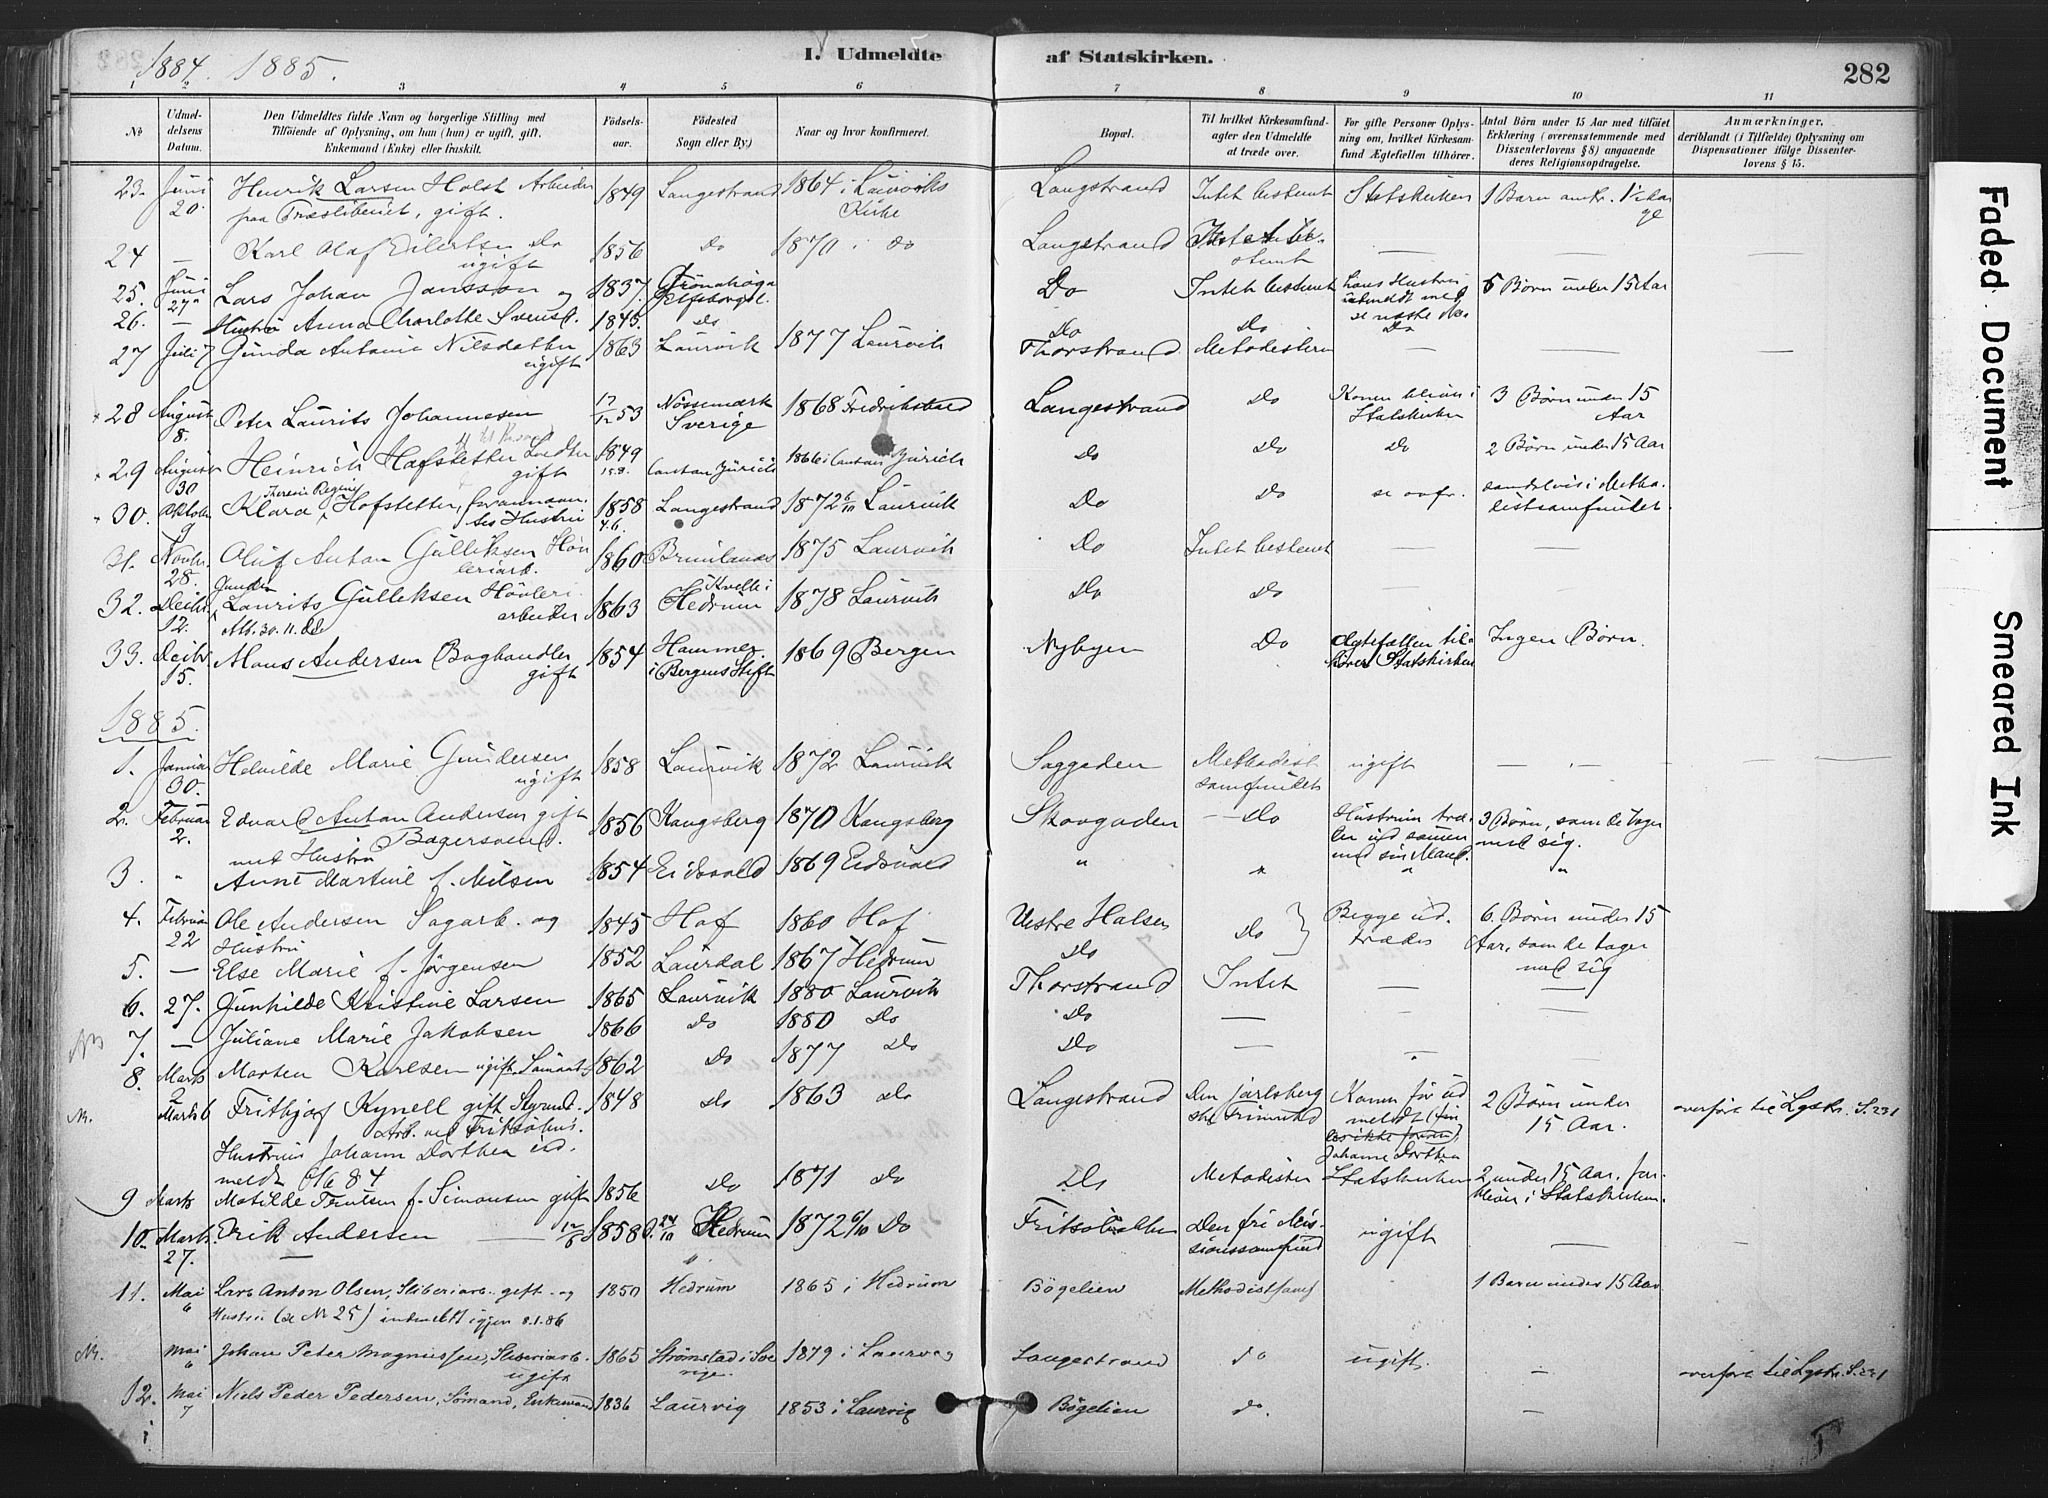 1884. 1885.
I. Udmeldte af Statskirken.
282
1 2 3 4 5 6 7 8 9 10 11
No
Udmel-
delsens
Datum.
Den Udmeldtes fulde Navn og borgerlige Stilling med
Tilföiende af Oplysning, om han (hun) er ugift, gift,
Enkemand (Enke) eller fraskilt.
Födsels-
aar.
Födested
Sogn eller By.)
Naar og hvor konfirmeret.
Bopæl.
Til hvilket Kirkesamfund-
agter den Udmeldte
at træde over.
For gifte Personer Oplys-
ning om, hvilket Kirkesam-
fund Ægtefællen tilhörer.
Antal Börn under 15 Aar med tilföiet
Erklæring (overensstemmende med
Dissenterlovens § 8) angaaende
deres Religionsopdragelse.
Anmærkninger,
deriblandt (i Tilfælde) Oplysning om
Dispensationer ifölge Dissenter-
lovens § 15.
23. Juni 20. Henrik Larsen Holst Arbeider 1849 Langestrand 1864 i Laurviks Kirke Langstrand Intet bestemt Statskirken 1 Barn
paa Træsliberiet, gift.
24 — Karl Olaf Eilertsen Do 1856 Do 1870 i do Langestrand —
ugift
25. Juni 27 Lars Johan Jansson og 1837 Do Intet bestemt hans Hustru udmeldt med se næste No 5 Børn under 15 Aar
26. — Hustru Anna Charlotte Svensd. 1845. Do Do Do Do
27 Juli 7 Gunda Antonie Nilsdatter 1863 Laurvik 1877 Laurvik Thorstrand Metodistern — — —
ugift
28 August 8. Peter Laurits Johannesen 53 Nössemark Sverige 1868 Fredrikstad Langestrand Do Konen bliver i Statskirken 3 Børn under 15 Aar
29 August 30 Heinrich Hofstetter 1849 15.8. Canton Zürich 1866 i Canton Zürich Do Do Do 2 Børn under 15 Aar
gift
30. Oktober 9 Klara Therese Regine Hofstetter, 1858 4.6. Langestrand 1872 6/10 Laurvik Do Do se ovfr.
Hustru
31. Novbr. 28. Oluf Anton Gulliksen 1860 Brunlanæs 1875 Laurvik Do Intet bestemt — —
32. Decbr. 12. Laurits Gulleksen Høvleri 1863 Kvelle i Hedrum 1878 Laurvik Do Do — —
arbeider
33. Decbr 15. Mons Andersen Boghandler 1854 Hammer i Bergens Stift 1869 Bergen Nybyen Do Ægtefællen til- hörer Statskirken Ingen Børn.
gift
1885.
1. Januar 30. Helvilde Marie Gundersen 1858 Laurvik 1872 Laurvik Saggaden Methodist samfundet ugift — — —
ugift
2. Februar 2. Edvard Anton Andersen gift 1856 Kongsberg 1870 Kongsberg Skovgaden — Do Hustruen træ- der ud sammen med sin Mand. 3 Børn, som de tager med sig.
Bagersvend.
med Hustru
3. " Anne Martine f. Nilsen 1854 Eidsvold 1869 Eidsvold " " " "
4. Februar 22 Ole Andersen Sagarb. og 1845 Hof 1860 Hof Vestre Halsen Do Begge ud- trædes 6 Børn under 15 Aar, som de tager med sig
Hustru
5. — Else Marie f. Jörgensen 1852 Laurdal 1867 Hedrum Do
6. 27. Gunhilde Kristine Larsen 1865 Laurvik 1880 Laurvik Thorstrand Intet — —
7. — Juliane Marie Jakobsen 1866 Do 1880 Do Do — — —
8. Marts 2 Morten Karlsen ugift Sømand 1862 Do 1877 Do Do — — —
Marts 6 Frithjof Kynell gift 1848 Do 1863 Do Langestrand Den jarlsberg ske Konen før ud meldt Johanne Dorthea 2 Børn under 15 Aar. overført til Lgstr. S. 231
Hustruen Johann Dorthea ud-
meldt 84
9 Marts Matilde f. Simonsen gift 1856 Do 1871 Do Do Metodister Statskirken 2 under 15 Aar, for- bliver i Statskirken.
10. Marts 27. Erik Andersen 1858 Hedrum 1872 6/10 Do Den fri Mis- sionssamfund ugift — —
11. Mai 6 Lars Anton Olsen, Sliberiarb. gift og 1850 Hedrum 1865 i Hedrum Bögelien Methodistsamf 1 Barn under 15 Aar
Hustru (se No 25) indmeldt igjen 8.1.86
Mai 6 Johan Peter Magnussen, Sliberiarb. 1865 Strømstad i Sve rige. 1879 i Laurvig Langestrand do ugift. — overført til Lgstr. S. 231
ugift
12. Mai 7 Niels Peder Pedersen, Sömand, Enkemand 1836 Laurvig 1853 i Laurvig Bögelien do. —
Faded Document
Smeared Ink